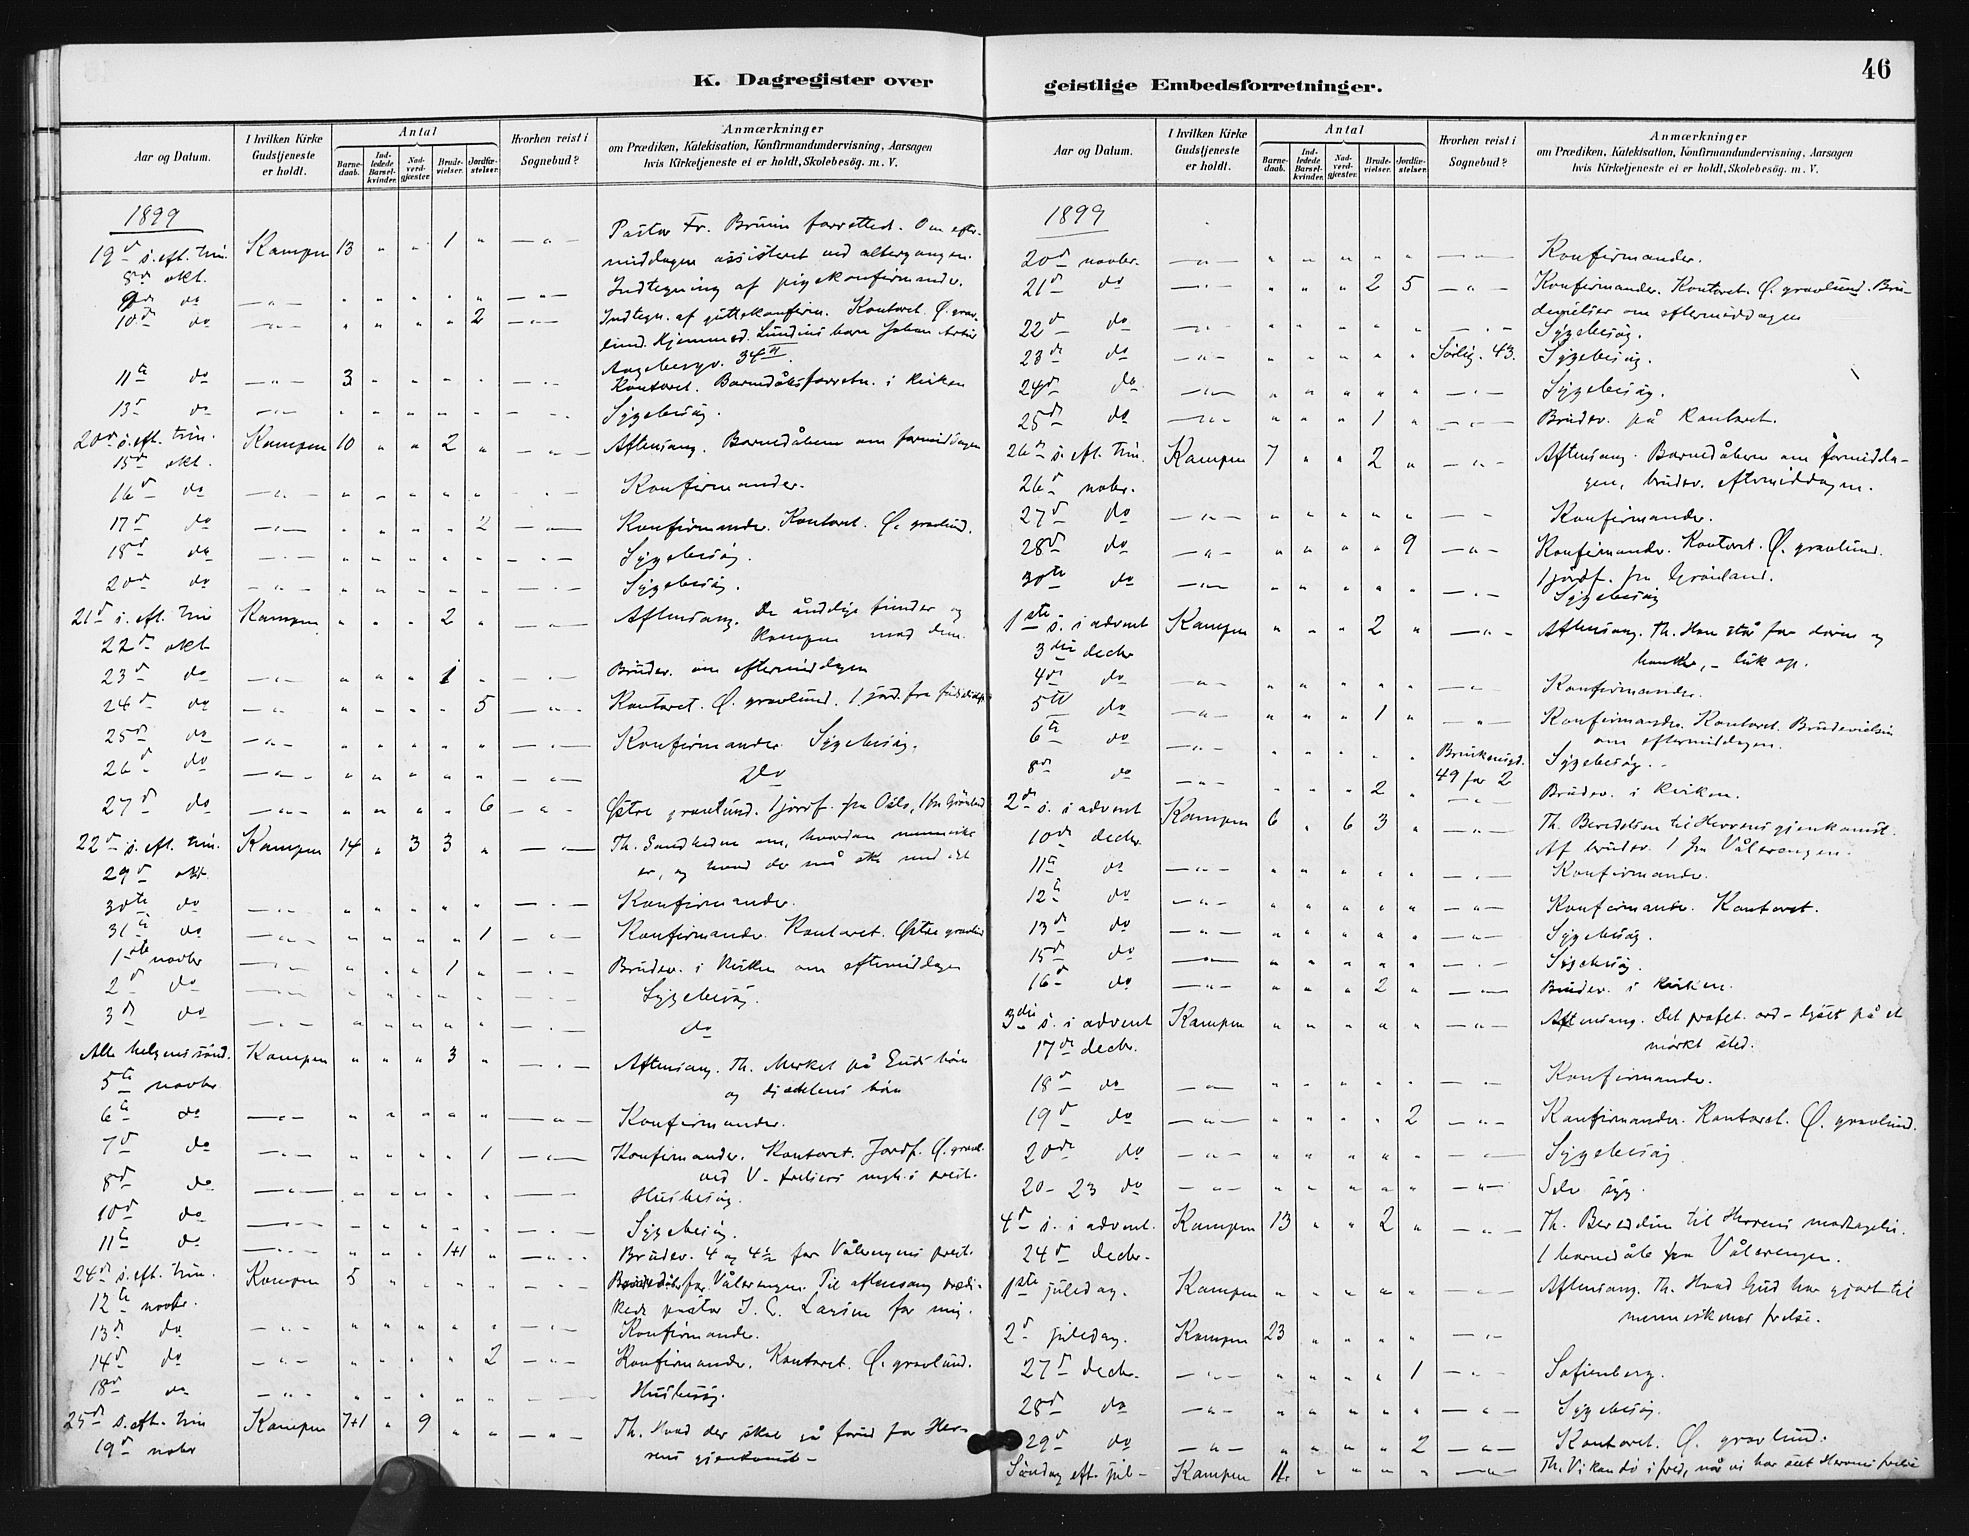 K. Dagregister over
geistlige Embedsforretninger.
46
Aar og Datum.
I hvilken Kirke Gudstjeneste er holdt.
Antal
Barnedaab.
Indledede Barselkvinder.
Nadverdgjæster.
Brudevielser.
Jordfæstelser.
Hvorhen reist i Sognebud?
Anmærkninger
om Prædiken, Katekisation, Konfirmandundervisning, Aarsagen
hvis Kirketjeneste ei er holdt, Skolebesög. m. V.
1899
19d s. eft. trin. Kampen 13 " " 1 " Pastor Fr. Bruun forrettet. Om efter-
8de okt. middagen assisteret ved altergangen.
9de do Indtegning af pigekonfirmander.
10de do 2 Indtegn. af guttekonfirm. Kontoret. Ø. grav-
lund. Hjemmed. Lundins barn Johan Artur
Aagebergv. 34
11te do 3 Kontoret. Barnedåbsforretn. i kirken
13d do Sygebesøg.
20de s. eft. trin. Kampen 10 " " 2 " Aftensang. Barnedåbene om formiddagen
15de okt.
16d do Konfirmander.
17d do 2 Konfirmander. Kontoret. Ø. gravlund.
18d do Sygebesøg.
20de do Sygebesøg.
21d s. eft. trin Kampen " " " 2 " Aftensang. De åndelige fiender og
22de okt kampen mod dem.
23d do 1 Brudev. om eftermiddagen
24d do 5 Kontoret. Ø. gravlund. 1 jord. fra
25d do Konfirmander Sygebesøg.
26d do do
27d do 6 Østre gravlund. 1 jordf. fra Oslo, 1 fra Grønland
22d s. eft. trin. Kampen 14 " 3 3 " Th. Sandheden om, hvordan mennesket
29d okt. er, og hvad der må ske med det
30te do Konfirmander.
31te do 1 Konfirmander. Kontoret. Østre gravlund
1ste novbr 1 Brudev. i kirken om eftermiddagen
2d do Sygebesøg.
3d do do
Alle helgens sønd. Kampen " " " 3 " Aftensang. Th. Merket på Guds børn
5te novbr og djævlens børn
6te do Konfirmander.
7d do 1 Konfirmander. Kontoret. Jordf. Ø. gravl.
8de do Husbesøg.
10de do Sygebesøg.
11te do 1+1 Brudev. 4 og 4 1/2 for Vålerengens prest.
24de s. eft. trin. Kampen 5 for Vålerengen. Til aftensang prædi-
12te novbr. kede pastor J. C. Larsen for mig.
13d do Konfirmander.
14d do 2 Konfirmander. Kontoret. Ø. gravlund.
18de do Husbesøg.
25de s. eft. trin Kampen 7+1 " 9 " " Th. Hvad der skal gå forud for Her-
19d nobr rens gjenkomst -
Aar og Datum.
I hvilken Kirke Gudstjeneste er holdt.
Antal
Barnedaab.
Indledede Barselkvinder.
Nadverdgjæster.
Brudevielser.
Jordfæstelser.
Hvorhen reist i Sognebud?
Anmærkninger
om Prædiken, Katekisation, Konfirmandundervisning, Aarsagen
hvis Kirketjeneste ei er holdt, Skolebesög. m. V.
1899
20de novbr. Konfirmander.
21d do 2 5 Konfirmander. Kontoret. Ø. gravlund. Bru-
devielser om eftermiddagen
22de do Sygebesøg.
23de do Sørlig. 43. Sygebesøg.
24de do Sygebesøg.
25de do 1 Brudev. på kontoret.
26de s. eft. trin. Kampen 7 " " 2 " Aftensang. Barnedåbene om formidda-
26d nobr. gen, brudev. eftermiddagen.
27d do Konfirmander.
28de do 9 Konfirmander. Kontoret. Ø. gravlund.
1 jordf. fra Grønland.
30te do Sygebesøg
1ste s. i advent Kampen " " " 2 " Aftensang. Th. Han står for døren og
3die decbr banker, - luk op.
4de do Konfirmander.
5te do 1 Konfirmander. Kontoret. Brudevielsen
om eftermiddagen.
6te do 49 for 2 Sygebesøg.
8de do 2 Brudev. i kirken.
2de s. i advent Kampen 6 " 6 3 " Th. Beredelsen til Herrens gjenkomst.
10de decbr. Af brudev. 1 fra Vålerengen.
11te do Konfirmander.
12te do Konfirmander. Kontoret.
13de do Sygebesøg.
15de do Sygebesøg.
16d do 2 Brudev. i kirken.
3die s. i advent Kampen Aftensang. Det profet. ord - lyset på et
17de decbr. mørkt sted.
18d do Konfirmander.
19d do 2 Konfirmander. Kontoret. Ø. gravlund.
20de do Sygebesøg
20 - 23 do Selv syg.
4d s. i advent. Kampen 13 " " 2 " Th. Beredelse til Herrens modtagelse.
24d decbr. 1 barnedåb fra Vålerengen.
1ste juledag. Kampen Aftensang. Th. Hvad Gud har gjort til
menneskenes frelse.
2d juledag. Kampen 23
27d decbr. 1 Sofienberg.
28de do Sygebesøg.
29d do 2 Kontoret. Ø. gravlund.
Søndag eft. jul - Kampen 11 Th. Vi kan dø i fred, når vi har set Herrens frelse